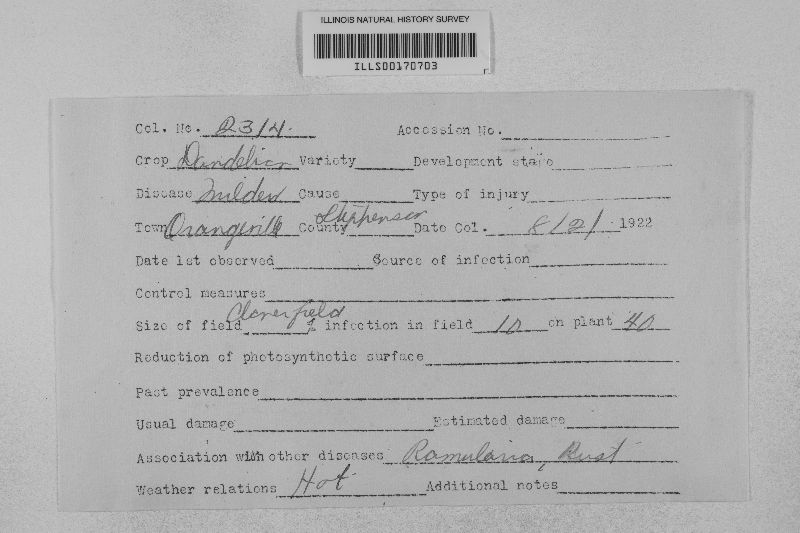 ILLINOIS NATURAL HISTORY SURVEY
ILLS00170703
Col. No. 2314. Accession No.
Crop Dandelion Variety Development stage
Disease Mildew Cause Type of injury
Town Orangeville County Stephenson Date Col. 8/2/ 1922
Date 1st observed Source of infection
Control measures
Size of field Cloverfield % infection in field 10 on plant 40
Reduction of photosynthetic surface
Past prevalence
Usual damage Estimated damage
Association with other diseases Ramularia, Rust
Weather relations Hot Additional notes